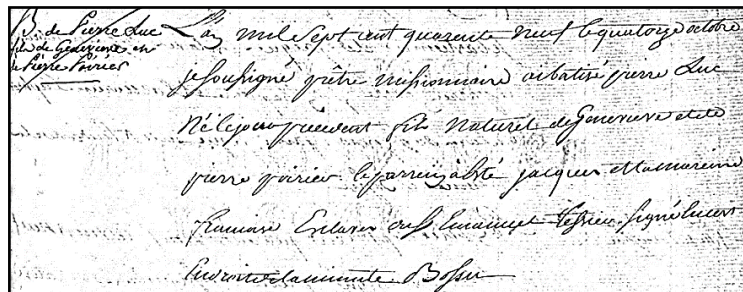 B. de Pierre Luc
fils de Genevieve et
de Pierre Poirier
L'an mil sept cent quarente neuf le quatorze octobre
je soussigné prêtre missionnaire ai batisé pierre Luc
né le jour précédent fils naturel de Genevieve et de
pierre poirier le parrein a été jacques et la mareine
francoise Esclaves du Sr Emanuel Tessier signé
la minute Bossu